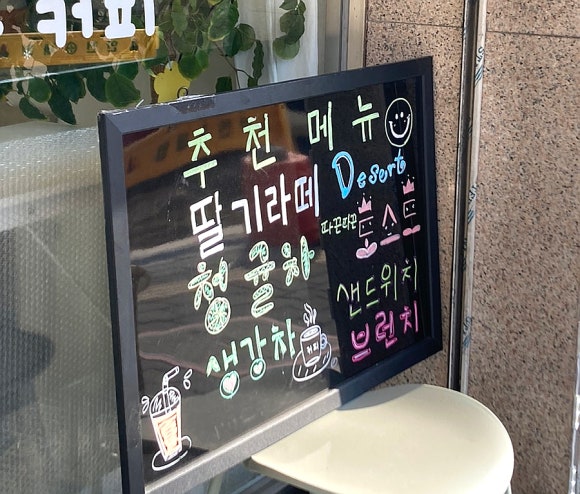 커피
추천메뉴
딸기라떼
청귤차
생강차
커피
Desert
따끈따끈
토스트
샌드위치
브런치